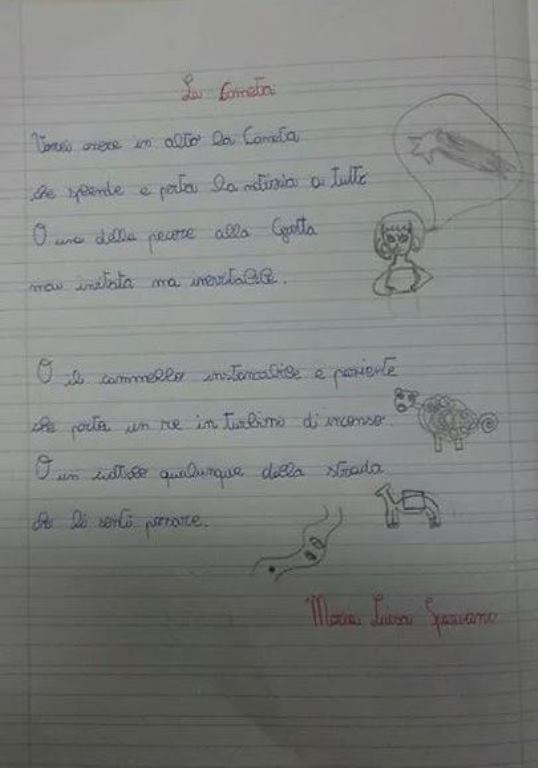 La Cometa
Vorrei essere in alto la Cometa
che splende e porta la notizia a tutti
O una delle pecore alla Grotta
mai invitata ma inevitabile.
O il cammello instancabile e paziente
che porta un re in turbine di incenso.
O un ciottolo qualunque della strada
che li sentì passare.
Maria Luisa Spaziano